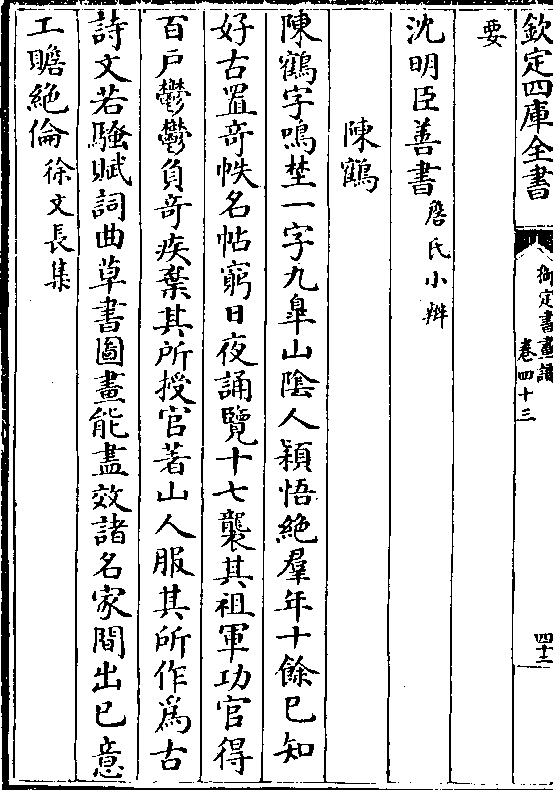 欽定四庫全書
御定書畫譜
卷四十三
四十二
要
沈明臣善書詹氏小辯
陳鶴
陳鶴字鳴埜一字九臯山隂人穎悟絶羣年十餘已知
好古置奇帙名帖窮日夜誦覽十七襲其祖軍功官得
百戶鬱鬱負奇疾棄其所授官著山人服其所作爲古
詩文若騷賦詞曲草書圖畫能盡效諸名家間出已意
工贍絶倫徐文長集